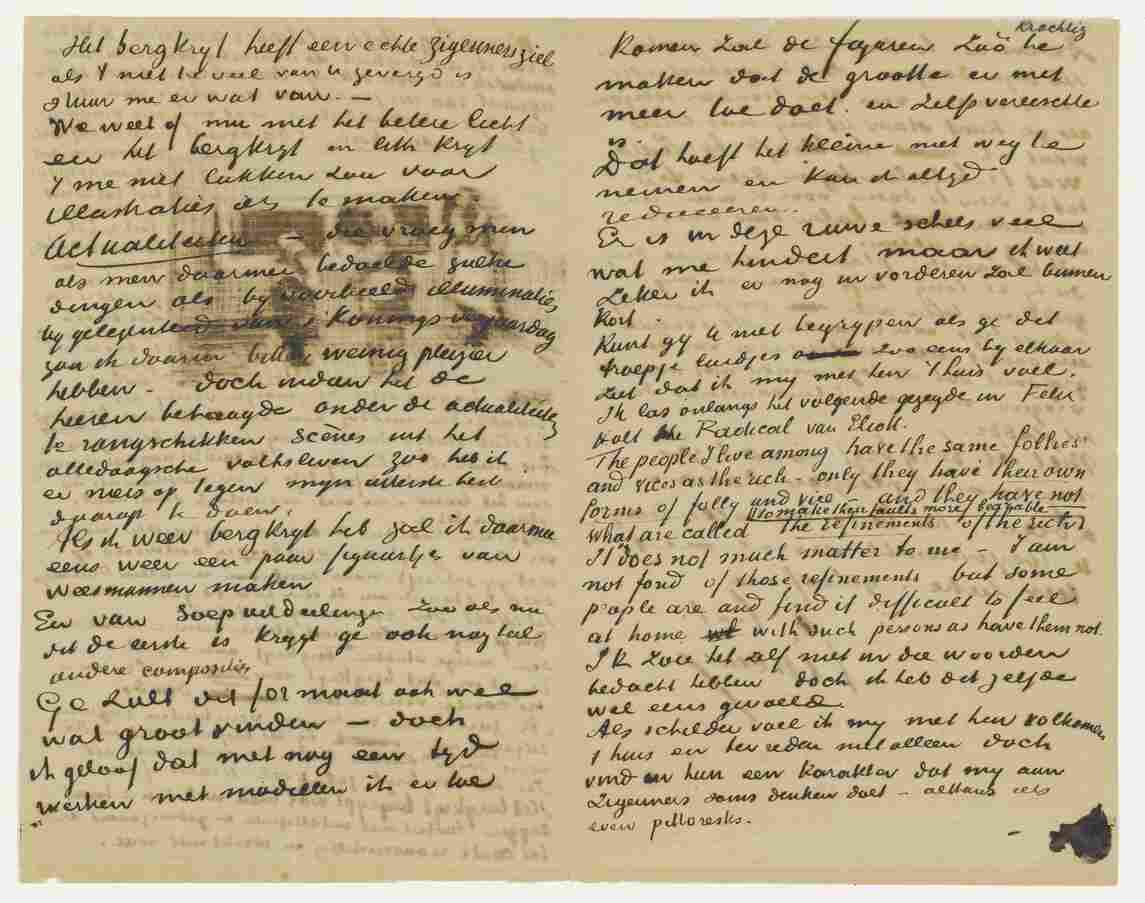 Het bergkryt heeft een echte zigeunersziel
als 't niet te veel van U gevergd is
stuur me er wat van. —
Wie weet of nu met het betere licht
en het bergkryt en lith kryt
't me niet lukken zou voor
illustraties iets te maken.
Actualiteiten — die vroeg men
als men daarmee bedoelde zulke
dingen als by voorbeeld illuminaties
by gelegenheid van 's Konings verjaardag
zou ik daarin bitter weinig pleizier
hebben. doch indien het de
heeren behaagde onder de actualiteiten
te rangschikken scènes uit het
alledaagsche volksleven zoo heb ik
er niets op tegen myn uiterste best
daarop te doen.
Als ik weer bergkryt heb zal ik daarmee
eens weer een paar figuurtjes van
weesmannen maken
En van soepuitdeelingen zoo als nu
dit de eerste is krygt ge ook nog tal
andere composities
Ge zult dit formaat ook wel
wat groot vinden — doch
ik geloof dat met nog een tyd
werken met modellen ik er toe
Krachtig
komen zal de figuren zoo te
maken dat de grootte er niet
meer toe doet. en zelfs vereischte
is.
Dat hoeft het kleine niet weg te
nemen en kan ik altyd
reduceeren.
Er is in deze ruwe schets veel
wat me hindert maar ik weet
zeker ik er nog in vorderen zal binnen
kort.
Kunt gy U niet begrypen als ge dit
troepje luidjes zoo eens by elkaar
ziet dat ik my met hen 't huis voel.
Ik las onlangs het volgende gezegde in Felix
Holt the Radical van Eliott.
The people I live among have the same follies
and vices as the rich — only they have their own
forms of folly and vice — and they have not
what are called the refinements of the rich
to make their faults more bearable
It does not much matter to me — I am
not fond of those refinements but some
people are and find it difficult to feel
at home with such persons as have them not.
Ik zou het zelf niet in die woorden
bedacht hebben doch ik heb dit zelfde
wel eens gevoeld.
Als schilder voel ik my met hen volkomen
't huis en tevreden niet alleen doch
vind in hun een karakter dat my aan
Zigeuners soms denken doet — althans iets
even pittoresks.